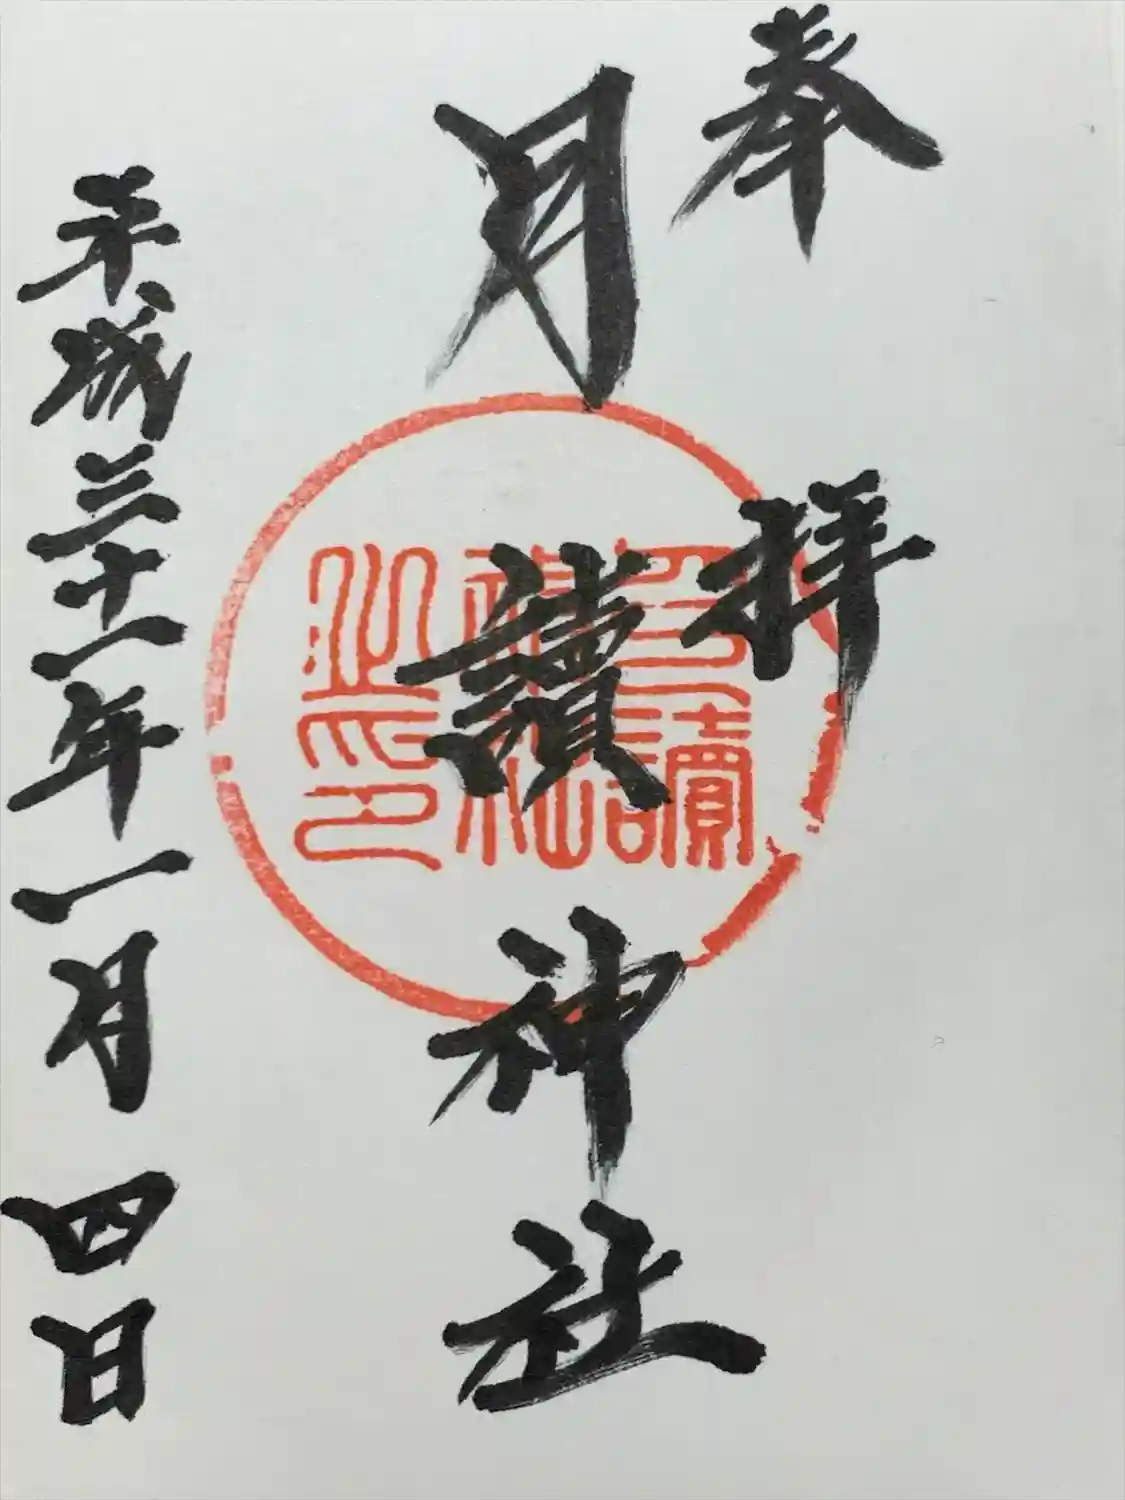 奉拝
月讀神社
月讀神社之印
平成三十一年一月四日